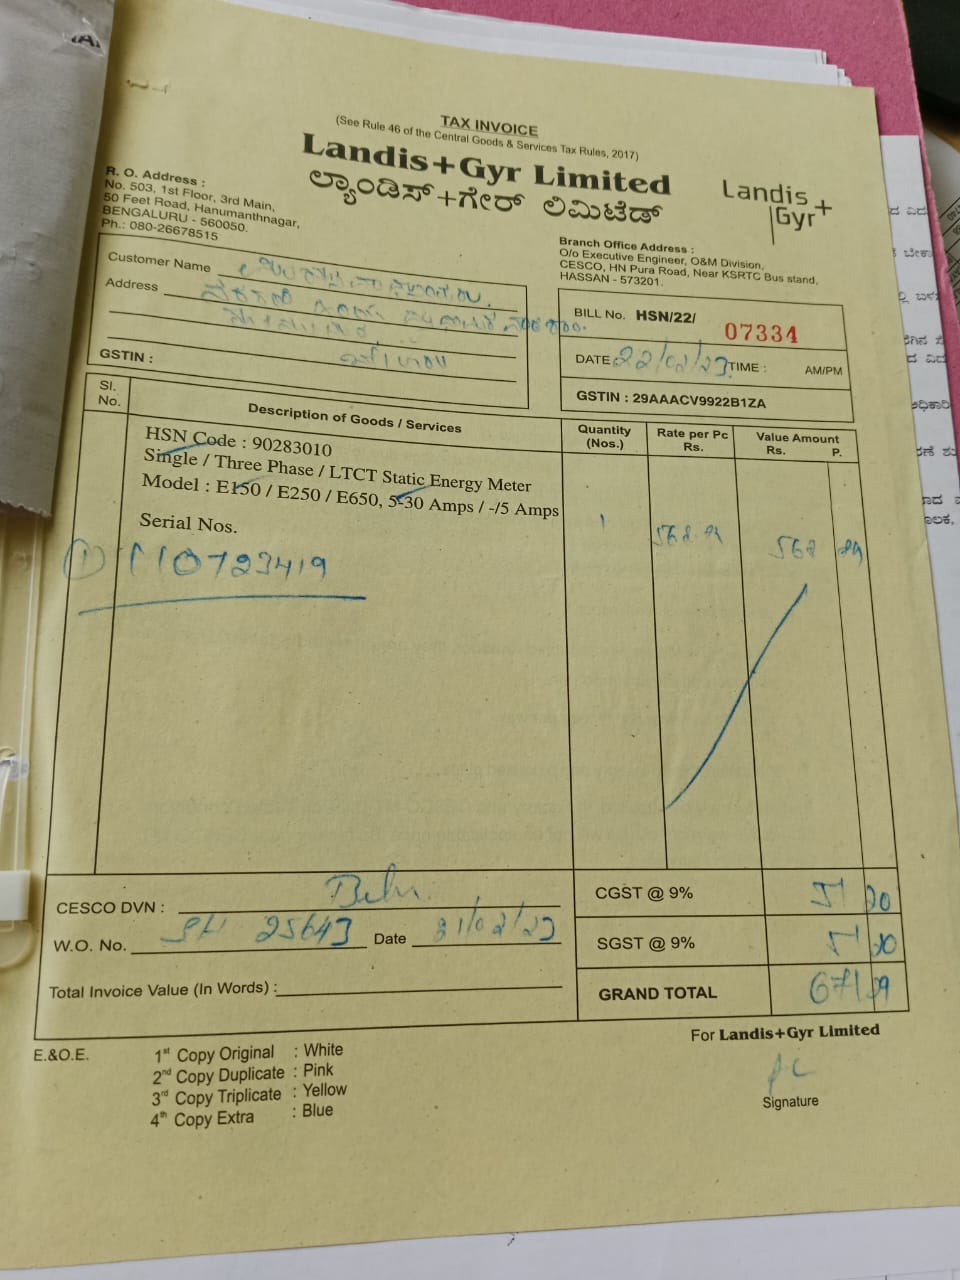 TAX INVOICE
(See Rule 46 of the Central Goods & Services Tax Rules, 2017)
Landis+Gyr Limited
ಲ್ಯಾಂಡಿಸ್+ಗೇರ್ ಲಿಮಿಟೆಡ್
Landis+
Gyr
R. O. Address :
No. 503, 1st Floor, 3rd Main,
50 Feet Road, Hanumanthnagar,
BENGALURU - 560050.
Ph.: 080-26678515
Branch Office Address :
O/o Executive Engineer, O&M Division,
CESCO, HN Pura Road, Near KSRTC Bus stand,
HASSAN - 573201.
Customer Name
Address
GSTIN :
BILL No. HSN/22/ 07334
DATE 22/02/23 TIME : AM/PM
GSTIN : 29AAACV9922B1ZA
Sl. No. Description of Goods / Services Quantity (Nos.) Rate per Pc Rs. Value Amount Rs. P.
HSN Code : 90283010
Single / Three Phase / LTCT Static Energy Meter
Model : E150 / E250 / E650, 5-30 Amps / -/5 Amps
Serial Nos.
1 568
① 110723419
CESCO DVN :
CGST @ 9% 51 20
W.O. No. 25643 Date /02/23
SGST @ 9% 51 20
Total Invoice Value (In Words) :
GRAND TOTAL 671 29
E.&O.E.
1st Copy Original : White
2nd Copy Duplicate : Pink
3rd Copy Triplicate : Yellow
4th Copy Extra : Blue
For Landis+Gyr Limited
Signature